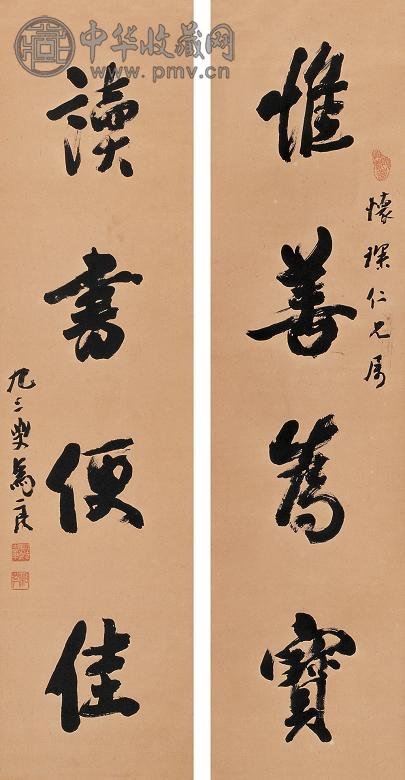 中华收藏网
www.pmv.cn
惟善為寶
懷琛仁兄屬
讀書便佳
九三叟馬良